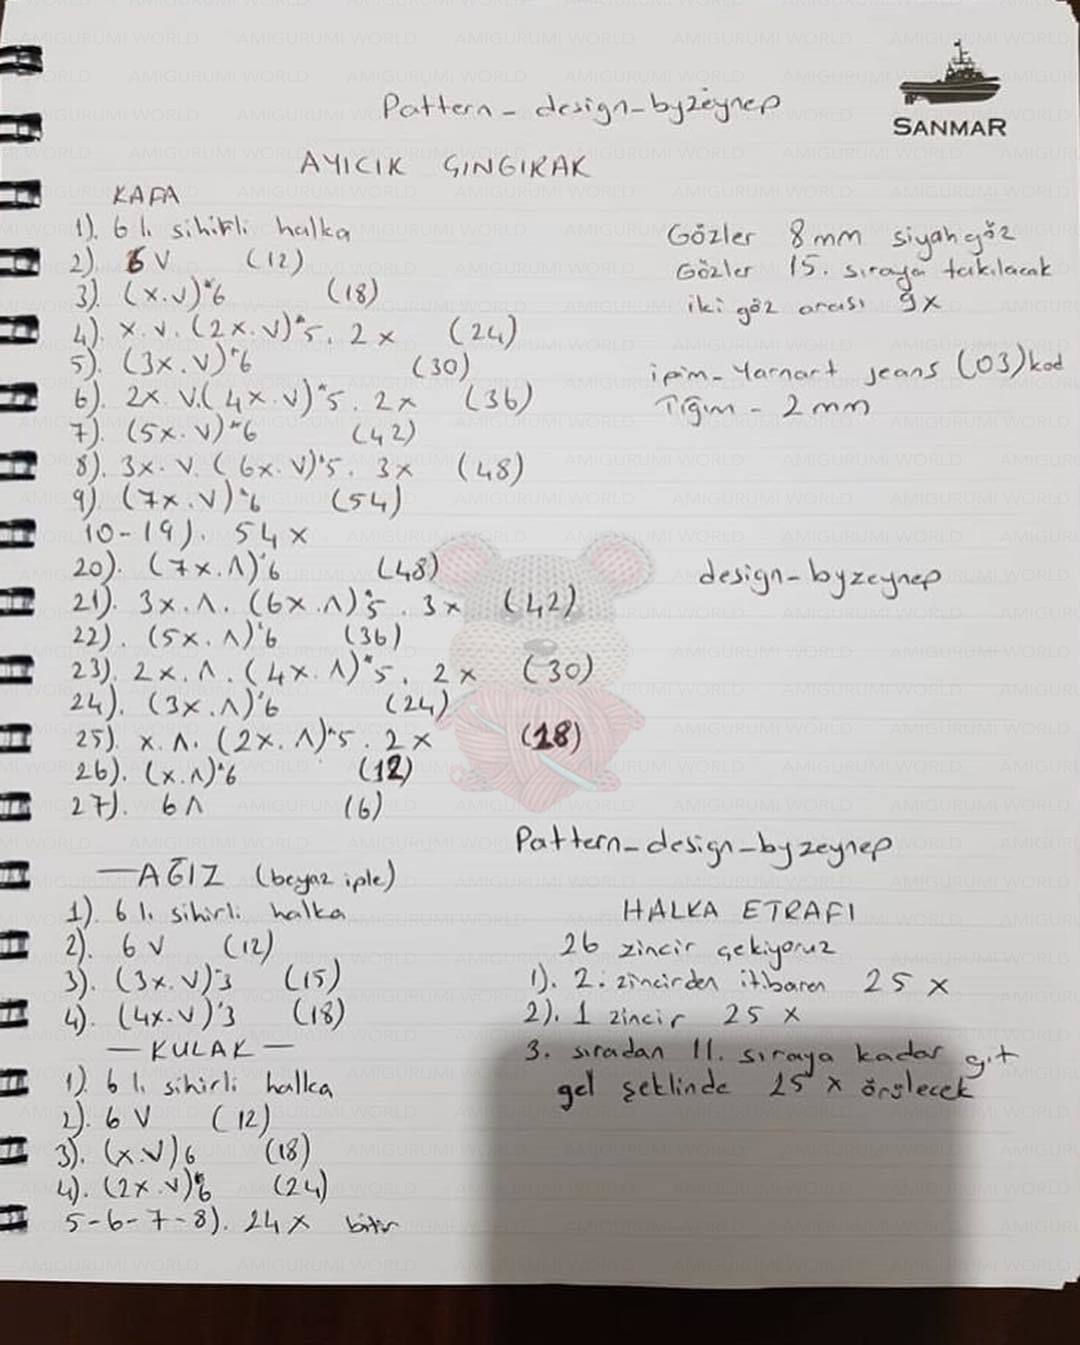 SANMAR
Pattern_design_byzeynep
AYICIK ÇINGIRAK
KAFA
1). 6 lı sihirli halka
2). 6 V (12)
3). (x.v)*6 (18)
4). x.v.(2x.v)*5.2x (24)
5). (3x.v)*6 (30)
6). 2x.v.(4x.v)*5.2x (36)
7). (5x.v)*6 (42)
8). 3x.v.(6x.v)*5.3x (48)
9). (7x.v)*6 (54)
10-19). 54x
20). (7x.Λ)*6 (48)
21). 3x.Λ.(6x.Λ)*5.3x (42)
22). (5x.Λ)*6 (36)
23). 2x.Λ.(4x.Λ)*5.2x (30)
24). (3x.Λ)*6 (24)
25). x.Λ.(2x.Λ)*5.2x (18)
26). (x.Λ)*6 (12)
27). 6Λ (6)
Gözler 8mm siyah göz
Gözler 15. sıraya takılacak
iki göz arası 9x
ipim-Yarnart jeans (03) kod
Tığım - 2mm
design-byzeynep
Pattern_design_byzeynep
—AĞIZ (beyaz iple)
1). 6 lı sihirli halka
2). 6 V (12)
3). (3x.v)*3 (15)
4). (4x.v)*3 (18)
—KULAK—
1). 6 lı sihirli halka
2). 6 V (12)
3). (x.v)6 (18)
4). (2x.v)*6 (24)
5-6-7-8). 24x bitir
HALKA ETRAFI
26 zincir çekiyoruz
1). 2. zincirden itibaren 25 x
2). 1 zincir 25 x
3. sıradan 11. sıraya kadar git
gel şeklinde 25 x örülecek
AMIGURUMI WORLD